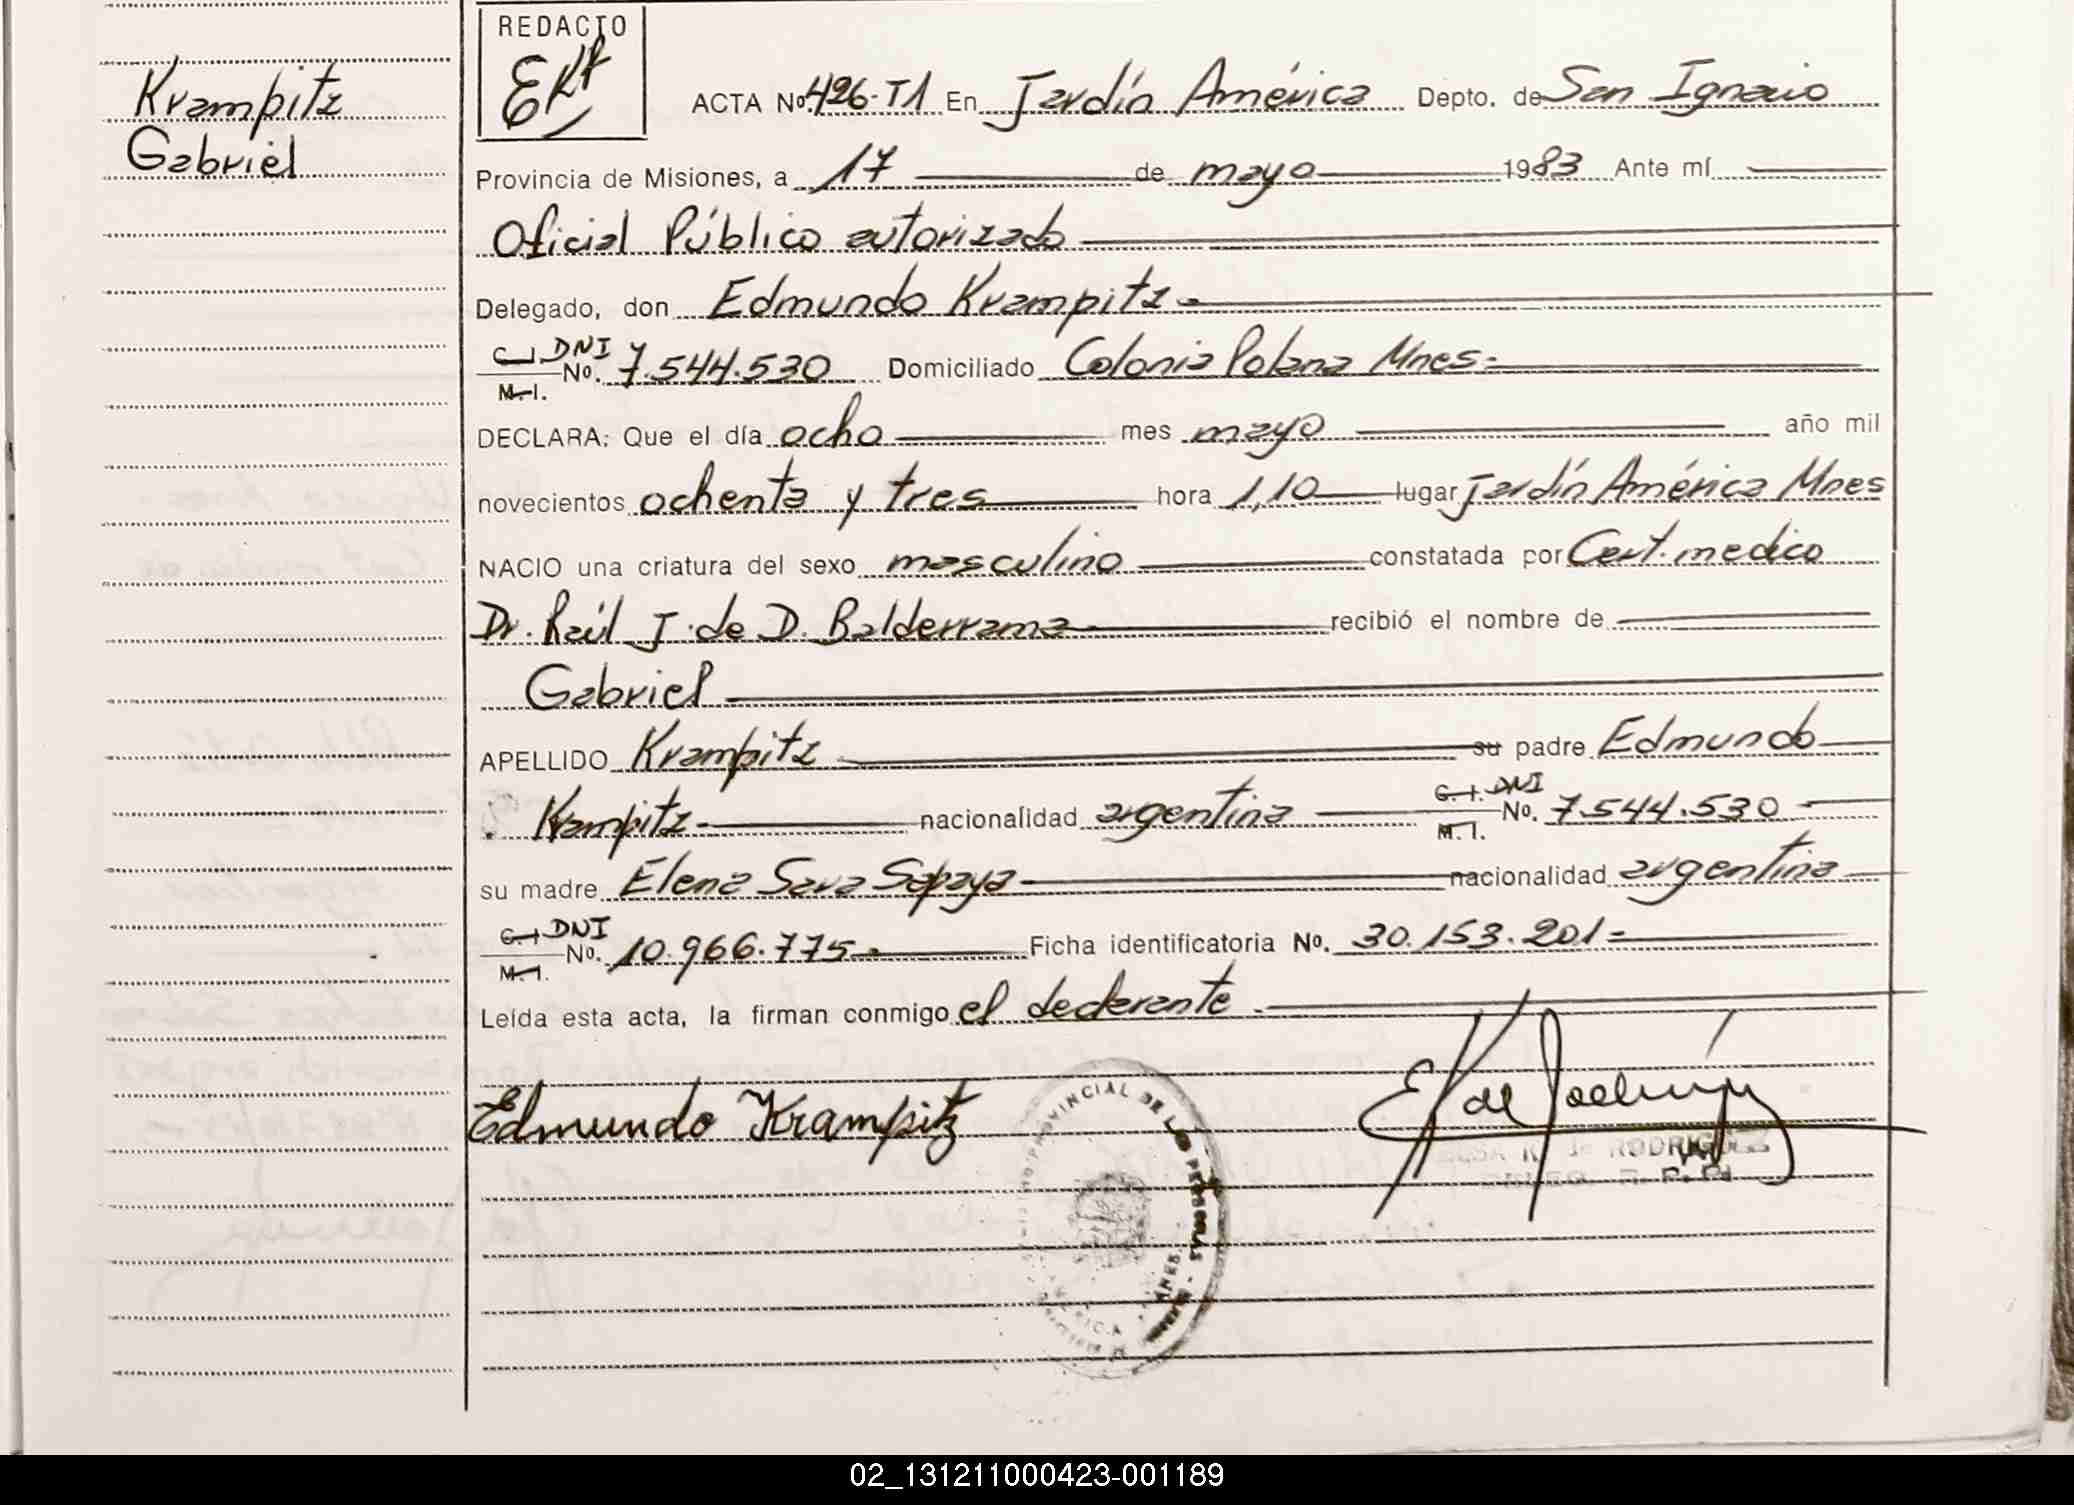 Krampitz
Gabriel
REDACTO
EKr
ACTA No. 426-T1 En Jardín América Depto. de San Ignacio
Provincia de Misiones, a 17 de mayo 1983 Ante mí
Oficial Público autorizado
Delegado, don Edmundo Krampitz
C.I. DNI
M.I. No. 7.544.530 Domiciliado Colonia Polana Mnes-
DECLARA: Que el día ocho mes mayo año mil
novecientos ochenta y tres hora 1,10 lugar Jardín América Mnes
NACIO una criatura del sexo masculino constatada por Cert. medico
Dr. Raúl J. de D. Balderrama recibió el nombre de
Gabriel
APELLIDO Krampitz su padre Edmundo
Krampitz- nacionalidad argentina C.I. DNI M.I. No. 7.544.530
su madre Elena Sara Sapaya nacionalidad argentina
C.I. DNI
M.I. No. 10.966.775- Ficha identificatoria No. 30.153.201-
Leída esta acta, la firman conmigo el declarante
Edmundo Krampitz
PROVINCIAL DE LAS PERSONAS
MNES.
RODRIGUEZ
02_131211000423-001189